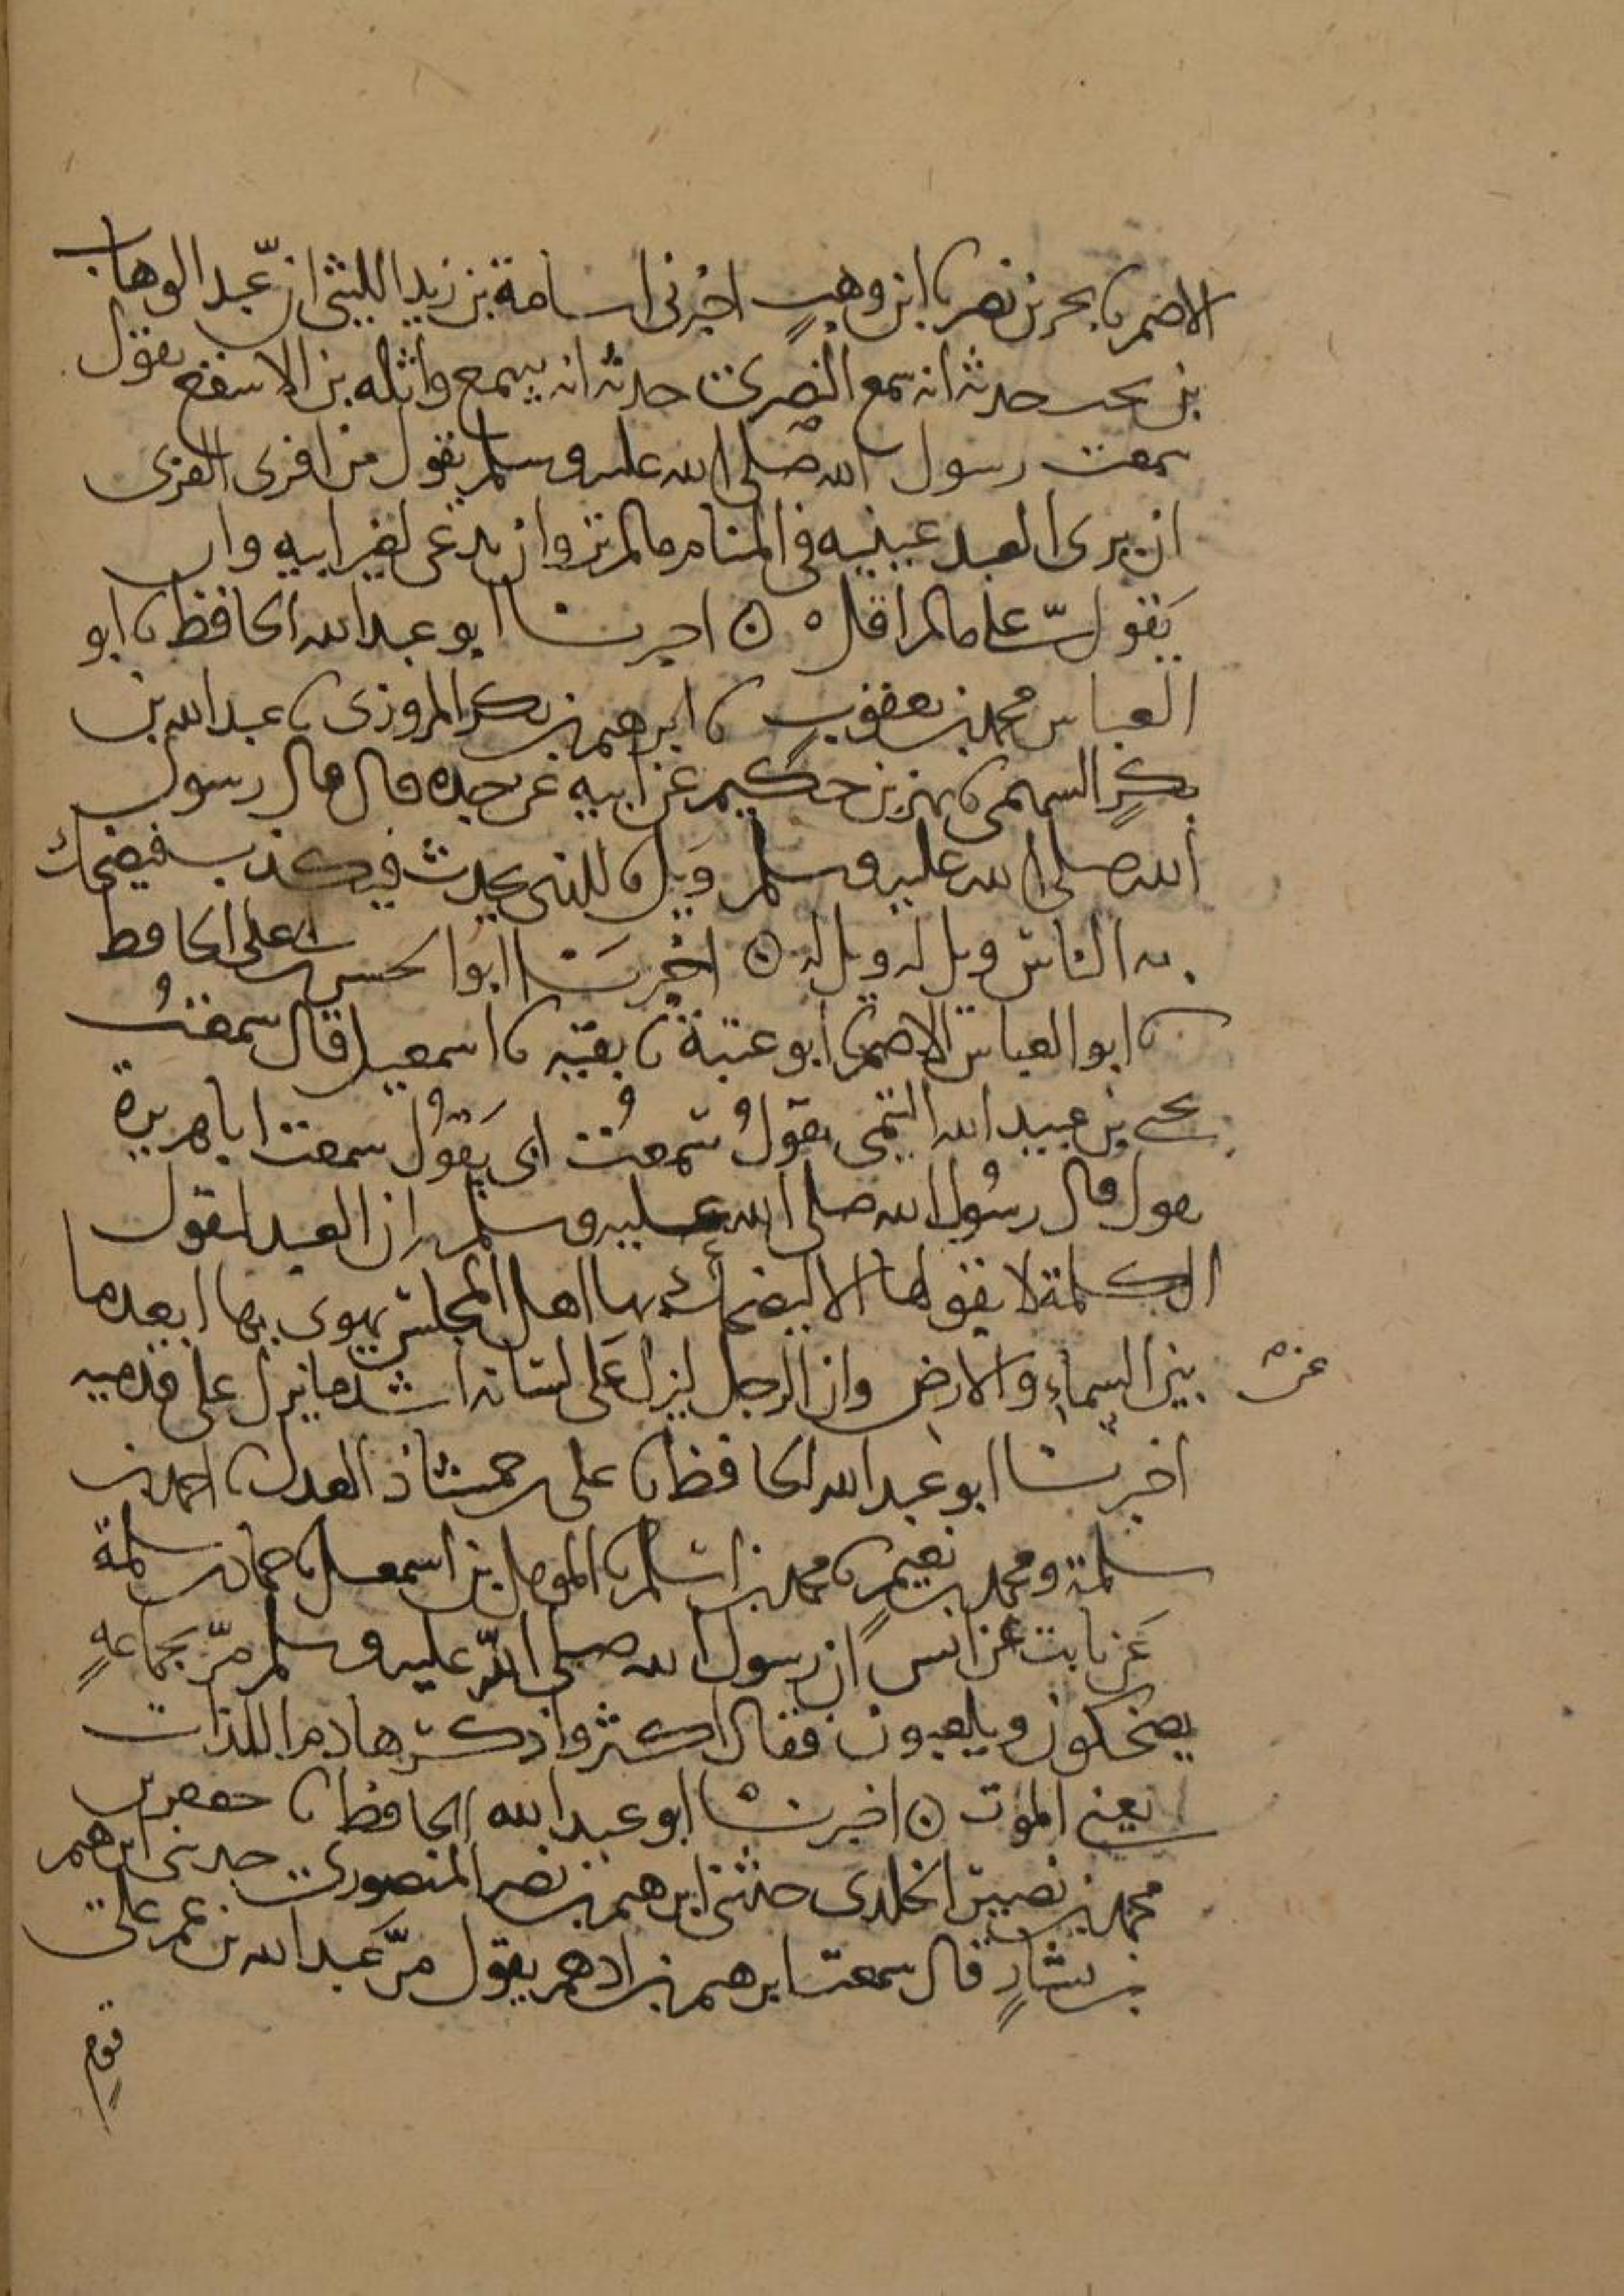 الاصم نا بحر بن نصر نا ابن وهب اخبرني اسامة بن زيد الليثي ان عبد الوهاب
بن بخت حدثه انه سمع النصري حدثه انه سمع واثله بن الاسقع يقول
سمعت رسول الله صلى الله عليه وسلم يقول من افرى الفرى
ان يرى العبد عينيه في المنام ما لم تر وان يدعى لغير ابيه وان
يقول علي ما لم اقله ه اخبرنا ابو عبد الله الحافظ نا ابو
العباس محمد بن يعقوب نا ابرهيم بن بكر المروزى نا عبد الله بن
بكر السهمى نا بهز بن حكيم عن ابيه عن جده قال قال رسول
الله صلى الله عليه وسلم ويل للذى يحدث فيكذب فيضحك
به الناس ويل له ويل له ه اخبرنا ابو الحسن بن على الحافظ
نا ابو العباس الاصم نا ابو عتبة نا بقية نا اسمعيل قال سمعت
يحيى بن عبيد الله التيمى يقول سمعت ابى يقول سمعت ابا هريرة
يقول قال رسول الله صلى الله عليه وسلم ان العبد ليقول
الكلمة لا يقولها الا ليضحك بها اهل المجلس يهوى بها ابعد ما
بين السماء والارض وان الرجل ليزل على لسانه اشد ما يزل على قدميه
عن
اخبرنا ابو عبد الله الحافظ نا على بن حمشاذ العدل نا احمد بن
سلمة ومحمد بن نعيم نا محمد بن اسلم نا المومل بن اسمعيل نا حماد بن سلمة
عن ثابت عن انس ان رسول الله صلى الله عليه وسلم مر بجماعة
يضحكون ويلعبون فقال اكثروا ذكر هادم اللذات
يعني الموت ه اخبرنا ابو عبد الله الحافظ نا جعفر بن
محمد بن نصير الخلدى حدثني ابرهيم بن نصر المنصورى حدثنى ابرهيم
بن بشار قال سمعت ابرهيم بن ادهم يقول مر عبد الله بن عمر على
قوم